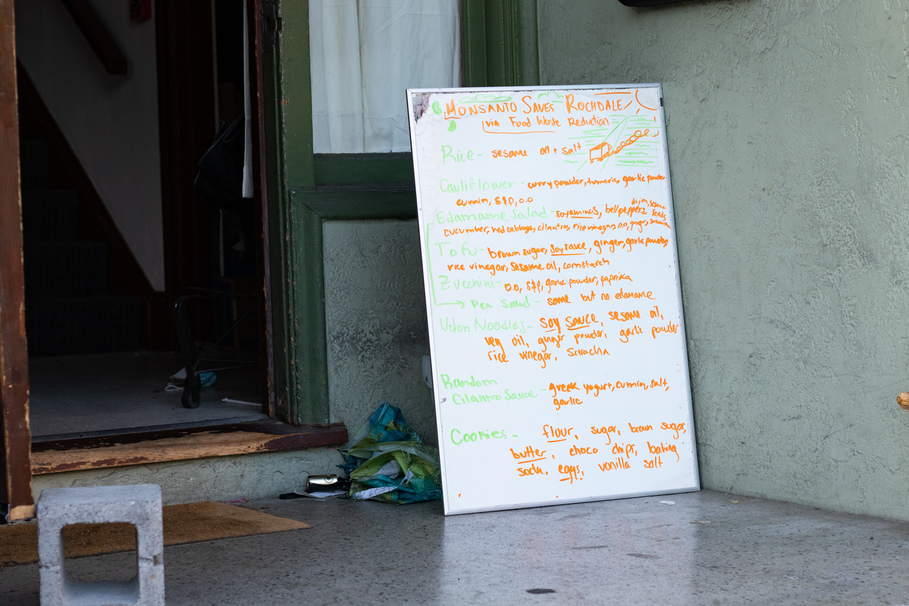 MONSANTO SAVES ROCHDALE
via Food Waste Reduction
Rice - sesame oil + salt
Cauliflower - curry powder, tumeric, garlic powder
cumin, S+P, O.O
Edamame Salad - soyaminos, bell peppers, seeds,
cucumber, red cabbage, cilantro, rice vinegar, O.O, ginger,
Tofu - brown sugar, soy sauce, ginger, garlic powder
rice vinegar, sesame oil, cornstarch
Zucchini - O.O, S+P, garlic powder, paprika
→ Pea Salad - same but no edamame
Udon Noodles - soy sauce, sesame oil,
veg oil, ginger powder, garlic powder
rice vinegar, sriracha
Random
Cilantro Sauce - greek yogurt, cumin, salt,
garlic
Cookies - flour, sugar, brown sugar,
butter, choco chips, baking
soda, eggs, vanilla salt